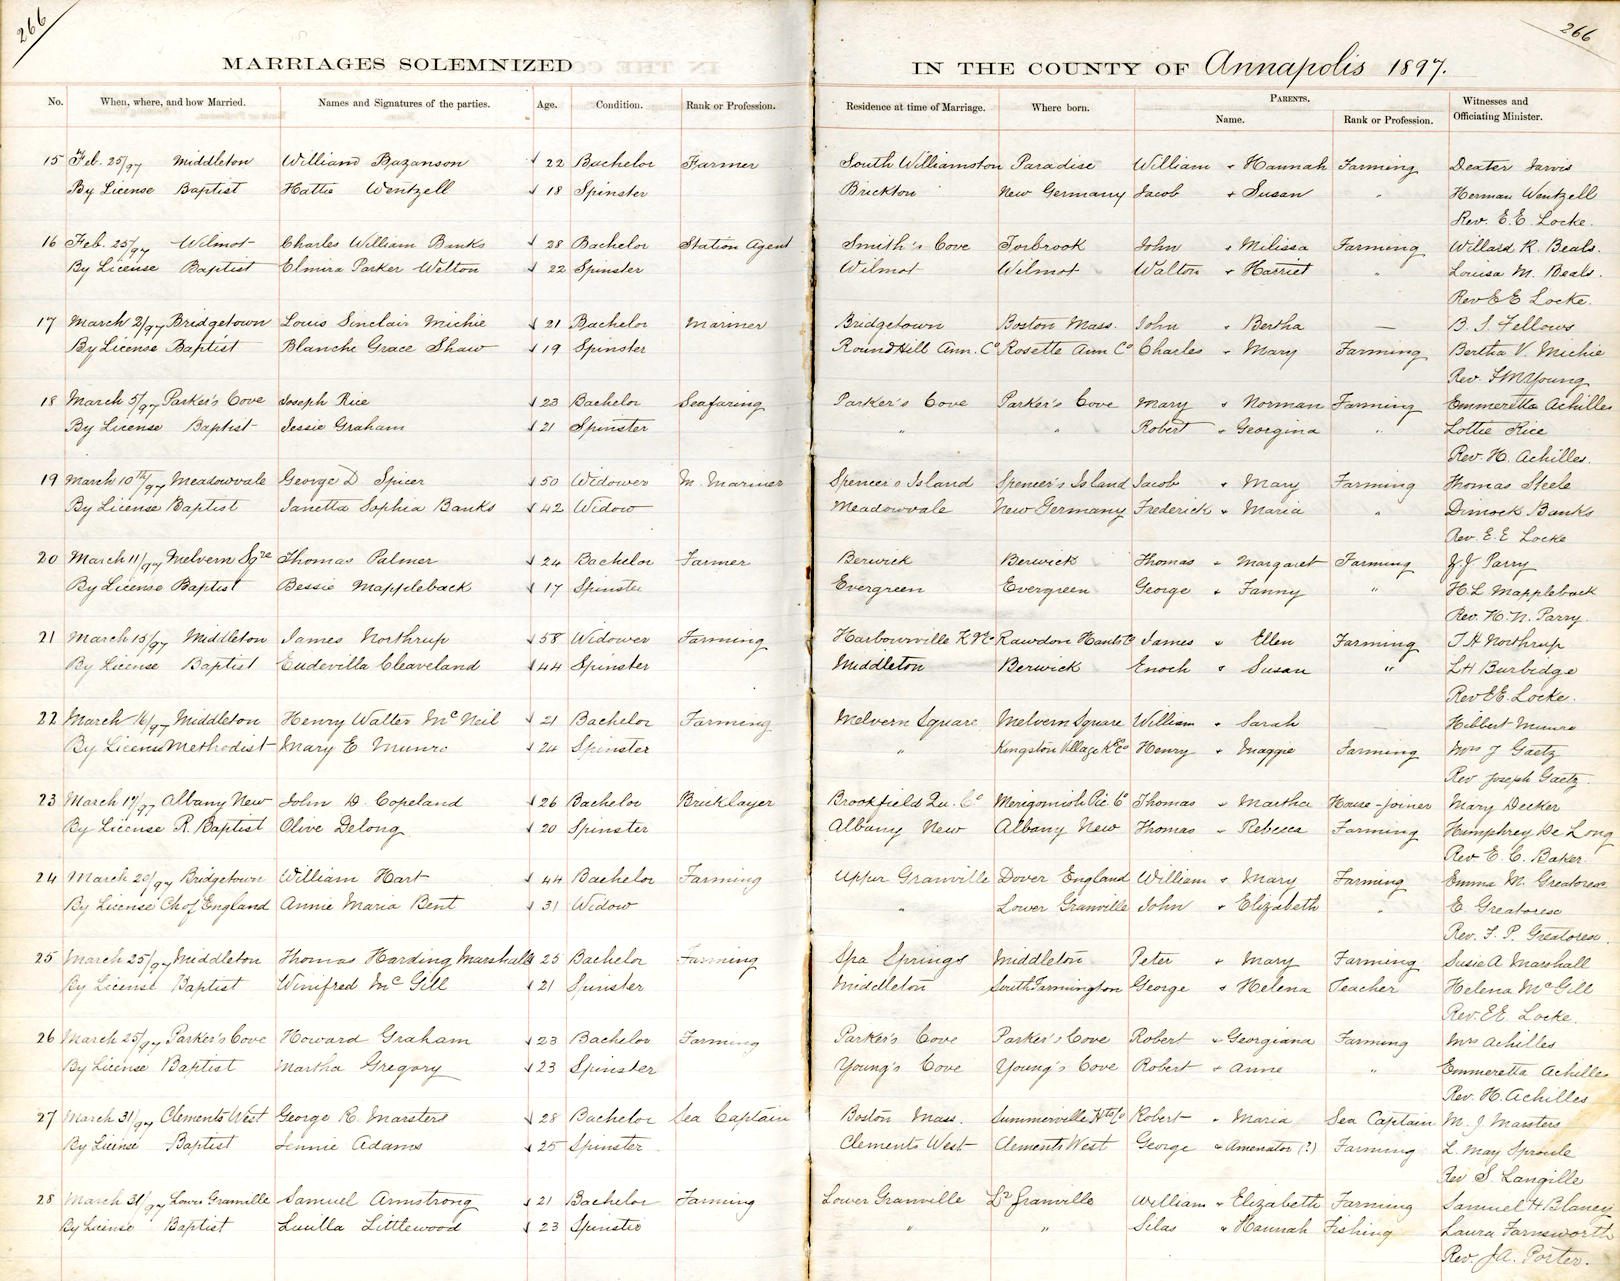 266
266
MARRIAGES SOLEMNIZED IN THE COUNTY OF Annapolis 1897.
No. When, where, and how Married. Names and Signatures of the parties. Age. Condition. Rank or Profession. Residence at time of Marriage. Where born. PARENTS. Name. Rank or Profession. Witnesses and Officiating Minister.
15 Feb. 25/97 Middleton William Bazanson 22 Bachelor Farmer South Williamston Paradise William + Hannah Farming Dexter Jarvis
By License Baptist Hattie Wentzell 18 Spinster Brickton New Germany Jacob + Susan " Herman Wentzell
Rev. E. E. Locke.
16 Feb. 25/97 Wilmot Charles William Banks 28 Bachelor Station Agent Smith's Cove Torbrook John + Milissa Farming Willard R. Beals.
By License Baptist Elmira Parker Welton 22 Spinster Wilmot Wilmot Walton + Harriet " Louisa M. Beals.
Rev E E Locke.
17 March 2/97 Bridgetown Louis Sinclair Michie 21 Bachelor Mariner Bridgetown Boston Mass. John + Bertha — B. S. Fellows
By License Baptist Blanche Grace Shaw 19 Spinster Round Hill Ann. Co Rosette Ann Co Charles + Mary Farming Bertha V. Michie
Rev. F M Young
18 March 5/97 Parker's Cove Joseph Rice 23 Bachelor Seafaring Parker's Cove Parker's Cove Mary + Norman Farming Emmeretta Achilles
By License Baptist Jessie Graham 21 Spinster " " Robert + Georgina " Lottie Rice
Rev. H. Achilles.
19 March 10th/97 Meadowvale George D. Spicer 50 Widower M. Mariner Spencer's Island Spencer's Island Jacob + Mary Farming Thomas Steele
By License Baptist Janetta Sophia Banks 42 Widow Meadowvale New Germany Frederick + Maria " Dimock Banks
Rev. E. E Locke
20 March 11/97 Melvern Sqre Thomas Palmer 24 Bachelor Farmer Berwick Berwick Thomas + Margaret Farming J J Parry
By License Baptist Bessie Mappleback 17 Spinster Evergreen Evergreen George + Fanny " H. L Mappleback
Rev. H. N. Parry.
21 March 15/97 Middleton James Northrup 58 Widower Farming Harbourville K. Co Rawdon Hants Co James + Ellen Farming T H Northrup
By License Baptist Eudevilla Cleaveland 44 Spinster Middleton Berwick Enoch + Susan " L H Burbidge
Rev E E. Locke.
22 March 16/97 Middleton Henry Walter McNeil 21 Bachelor Farming Melvern Square Melvern Square William + Sarah — Hibbert Munro
By License Methodist Mary E Munro 24 Spinster " Kingston Village K. Co Henry + Maggie Farming Mrs J Gaetz
Rev Joseph Gaetz
23 March 17/97 Albany New John D. Copeland 26 Bachelor Bricklayer Brookfield Qu. Co Merigomish Pic Co Thomas + Martha House-joiner Mary Decker
By License R. Baptist Olive Delong 20 Spinster Albany New Albany New Thomas + Rebecca Farming Humphrey De Long
Rev E. C. Baker
24 March 20/97 Bridgetown William Hart 44 Bachelor Farming Upper Granville Dover England William + Mary Farming Emma M. Greatorex
By License Ch of England Annie Maria Bent 31 Widow " Lower Granville John + Elizabeth " E Greatorex
Rev. F. P. Greatorex.
25 March 25/97 Middleton Thomas Harding Marshall 25 Bachelor Farming Spa Springs Middleton Peter + Mary Farming Susie A Marshall
By License Baptist Winifred McGill 21 Spinster Middleton South Farmington George + Helena Teacher Helena McGill
Rev. E E. Locke.
26 March 25/97 Parker's Cove Howard Graham 23 Bachelor Farming Parker's Cove Parker's Cove Robert + Georgiana Farming Mrs Achilles
By License Baptist Martha Gregory 23 Spinster Young's Cove Young's Cove Robert + Anne " Emmeretta Achilles
Rev. H. Achilles
27 March 31/97 Clements West George R. Marsters 28 Bachelor Sea Captain Boston Mass. Summerville Hts Co Robert + Maria Sea Captain M. J. Marsters
By License Baptist Jennie Adams 25 Spinster Clements West Clements West George + Amenator (?) Farming L. May Sproule
Rev S. Langille
28 March 31/97 Lower Granville Samuel Armstrong 21 Bachelor Farming Lower Granville Lr Granville William + Elizabeth Farming Samuel H Blaney
By License Baptist Luella Littlewood 23 Spinster " " Silas + Hannah Fishing Laura Farnsworth
Rev. J A. Porter.